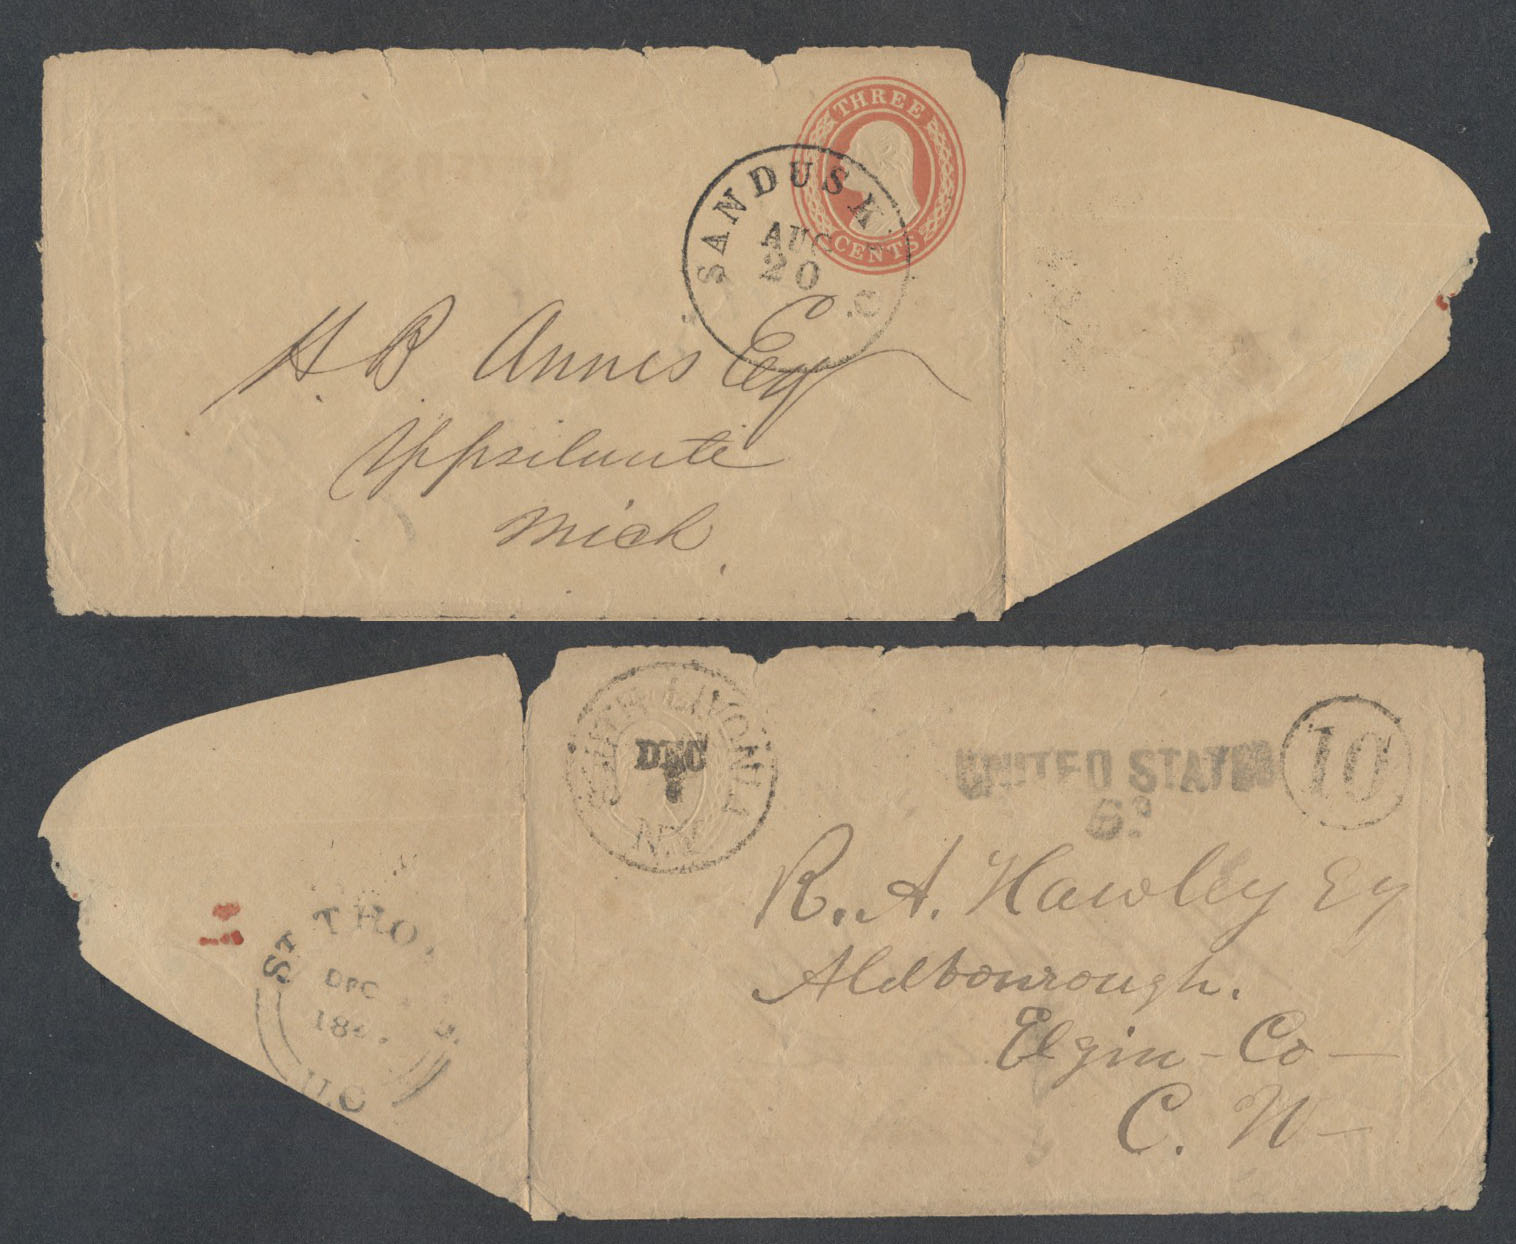 THREE
CENTS
SANDUSK
AUG
20
O.
H. B Annis Esq
Yppsilante
Mich
SOUTH LIVONIA
DEC
7
N.Y.
UNITED STATES
6D
10
R. A. Hawley Esq
Aldbourough.
Elgin - Co -
C. W -
ST THO
DEC
UC